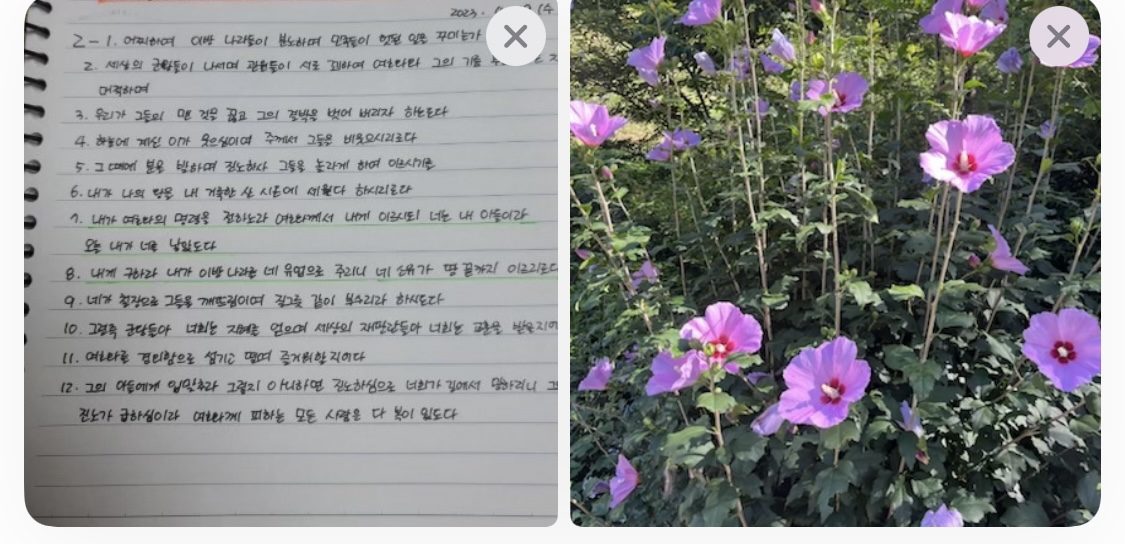 2023.
2-1. 어찌하여 이방 나라들이 분노하며 민족들이 헛된 일을 꾸미는가
2. 세상의 군왕들이 나서며 관원들이 서로 꾀하여 여호와와 그의 기름
대적하며
3. 우리가 그들의 맨 것을 끊고 그의 결박을 벗어 버리자 하는도다
4. 하늘에 계신 이가 웃으심이여 주께서 그들을 비웃으시리로다
5. 그 때에 분을 발하며 진노하사 그들을 놀라게 하여 이르시기를
6. 내가 나의 왕을 내 거룩한 산 시온에 세웠다 하시리로다
7. 내가 여호와의 명령을 전하노라 여호와께서 내게 이르시되 너는 내 아들이라
오늘 내가 너를 낳았도다
8. 내게 구하라 내가 이방 나라를 네 유업으로 주리니 네 소유가 땅 끝까지 이르리로다
9. 네가 철장으로 그들을 깨뜨림이여 질그릇 같이 부수리라 하시도다
10. 그런즉 군왕들아 너희는 지혜를 얻으며 세상의 재판관들아 너희는 교훈을 받을지어
11. 여호와를 경외함으로 섬기고 떨며 즐거워할지어다
12. 그의 아들에게 입맞추라 그렇지 아니하면 진노하심으로 너희가 길에서 망하리니 그
진노가 급하심이라 여호와께 피하는 모든 사람은 다 복이 있도다